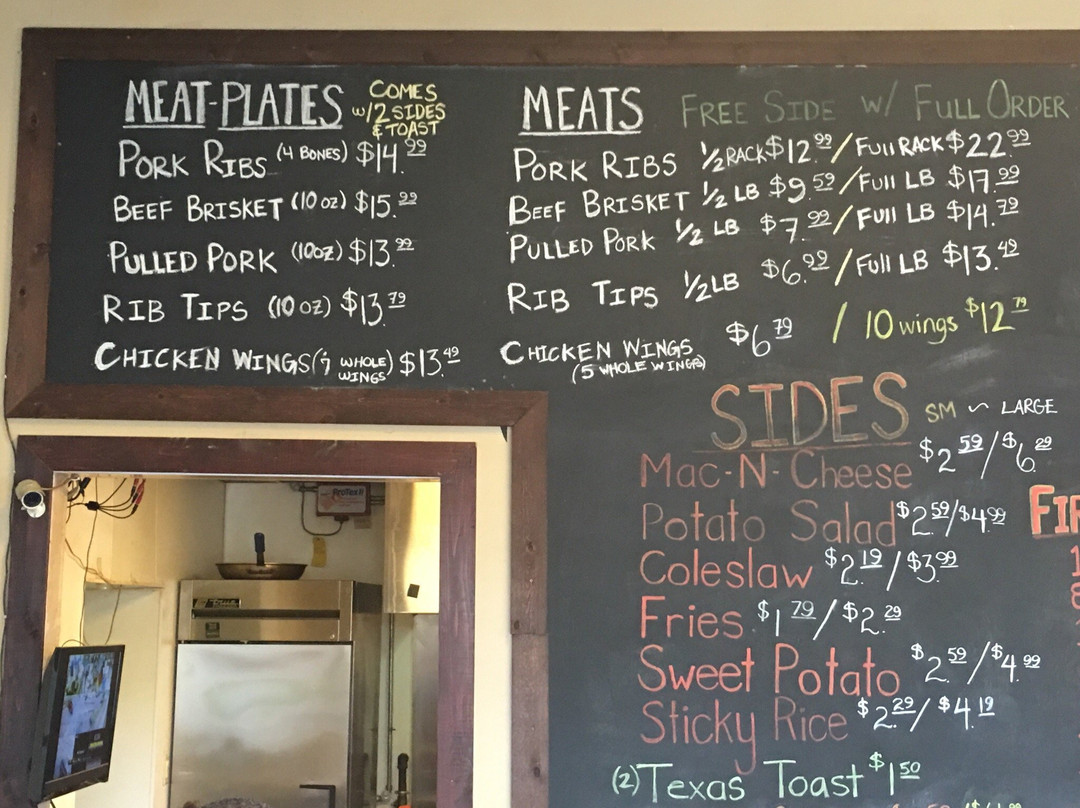 MEAT-PLATES COMES w/2 SIDES & TOAST
PORK RIBS (4 BONES) $14.99
BEEF BRISKET (10 oz) $15.99
PULLED PORK (10oz) $13.99
RIB TIPS (10 oz) $13.79
CHICKEN WINGS (7 WHOLE WINGS) $13.49
MEATS FREE SIDE w/ FULL ORDER
PORK RIBS 1/2 RACK $12.99 / Full RACK $22.99
BEEF BRISKET 1/2 LB $9.59 / Full LB $17.99
PULLED PORK 1/2 LB $7.99 / Full LB $14.79
RIB TIPS 1/2 LB $6.99 / Full LB $13.49
CHICKEN WINGS $6.79 / 10 wings $12.79
(5 WHOLE WINGS)
SIDES SM ~ LARGE
Mac-N-Cheese $2.59/$6.29
Potato Salad $2.59/$4.99
Coleslaw $2.19/$3.99
Fries $1.79/$2.29
Sweet Potato $2.59/$4.99
Sticky Rice $2.29/$4.19
(2) Texas Toast $1.50
True